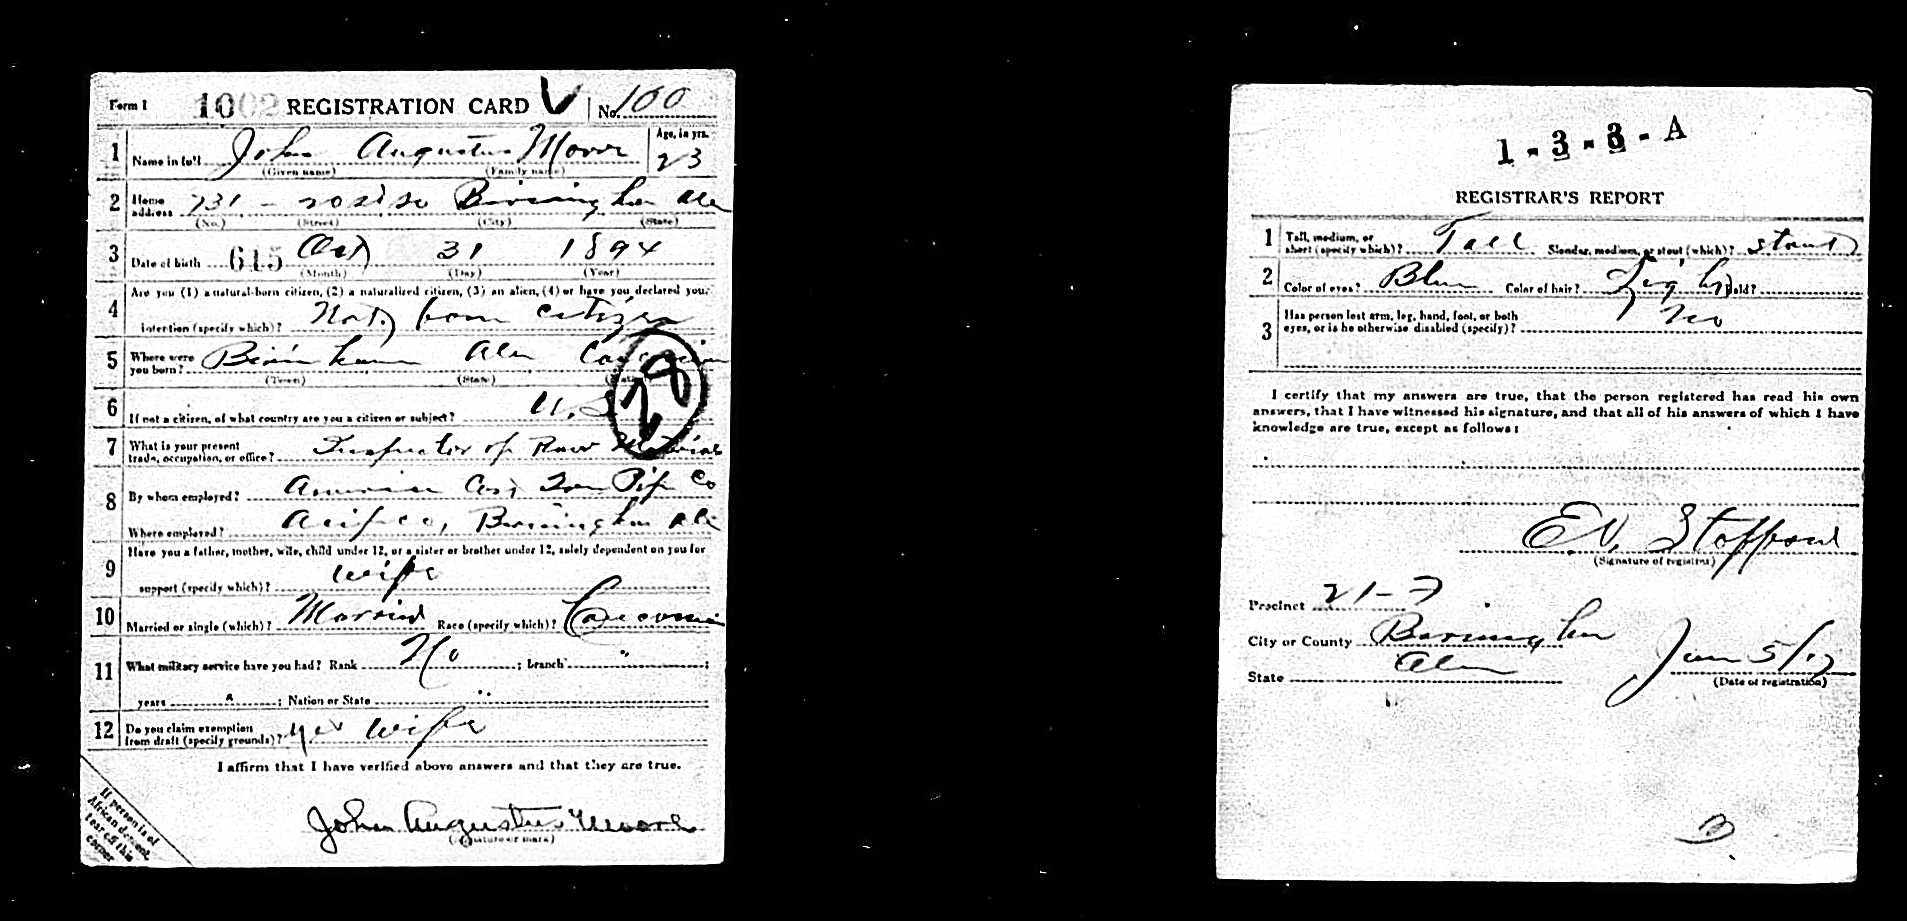 Form 1 1002 REGISTRATION CARD No. 100
1 Name in full John Augustus Moore Age, in yrs. 23
(Given name) (Family name)
2 Home address 731 - 20 St So Birmingham Ala
(No.) (Street) (City) (State)
3 Date of birth 615 Oct 31 1894
(Month) (Day) (Year)
4 Are you (1) a natural-born citizen, (2) a naturalized citizen, (3) an alien, (4) or have you declared your
intention (specify which)? Nat. born citizen
5 Where were you born? Birmham Ala
(Town) (State)
28
6 If not a citizen, of what country are you a citizen or subject? U.S.
7 What is your present trade, occupation, or office? Inspector of Raw Material
8 By whom employed? American Cast Iron Pipe Co
Where employed? Acipco, Birmingham Ala
9 Have you a father, mother, wife, child under 12, or a sister or brother under 12, solely dependent on you for
support (specify which)? wife
10 Married or single (which)? Married Race (specify which)? Caucasian
11 What military service have you had? Rank No ; branch " ;
years " ; Nation or State "
12 Do you claim exemption from draft (specify grounds)? yes wife
I affirm that I have verified above answers and that they are true.
John Augustus Moore
(Signature or mark)
If person is of
African descent,
tear off this
corner
1-3-3-A
REGISTRAR'S REPORT
1 Tall, medium, or short (specify which)? Tall Slender, medium, or stout (which)? stout
2 Color of eyes? Blue Color of hair? Light Bald?
3 Has person lost arm, leg, hand, foot, or both eyes, or is he otherwise disabled (specify)? No
I certify that my answers are true, that the person registered has read his own
answers, that I have witnessed his signature, and that all of his answers of which I have
knowledge are true, except as follows:
E.V. Stafford
(Signature of registrar)
Precinct 21-7
City or County Birmingham
State Ala
June 5/17
(Date of registration)